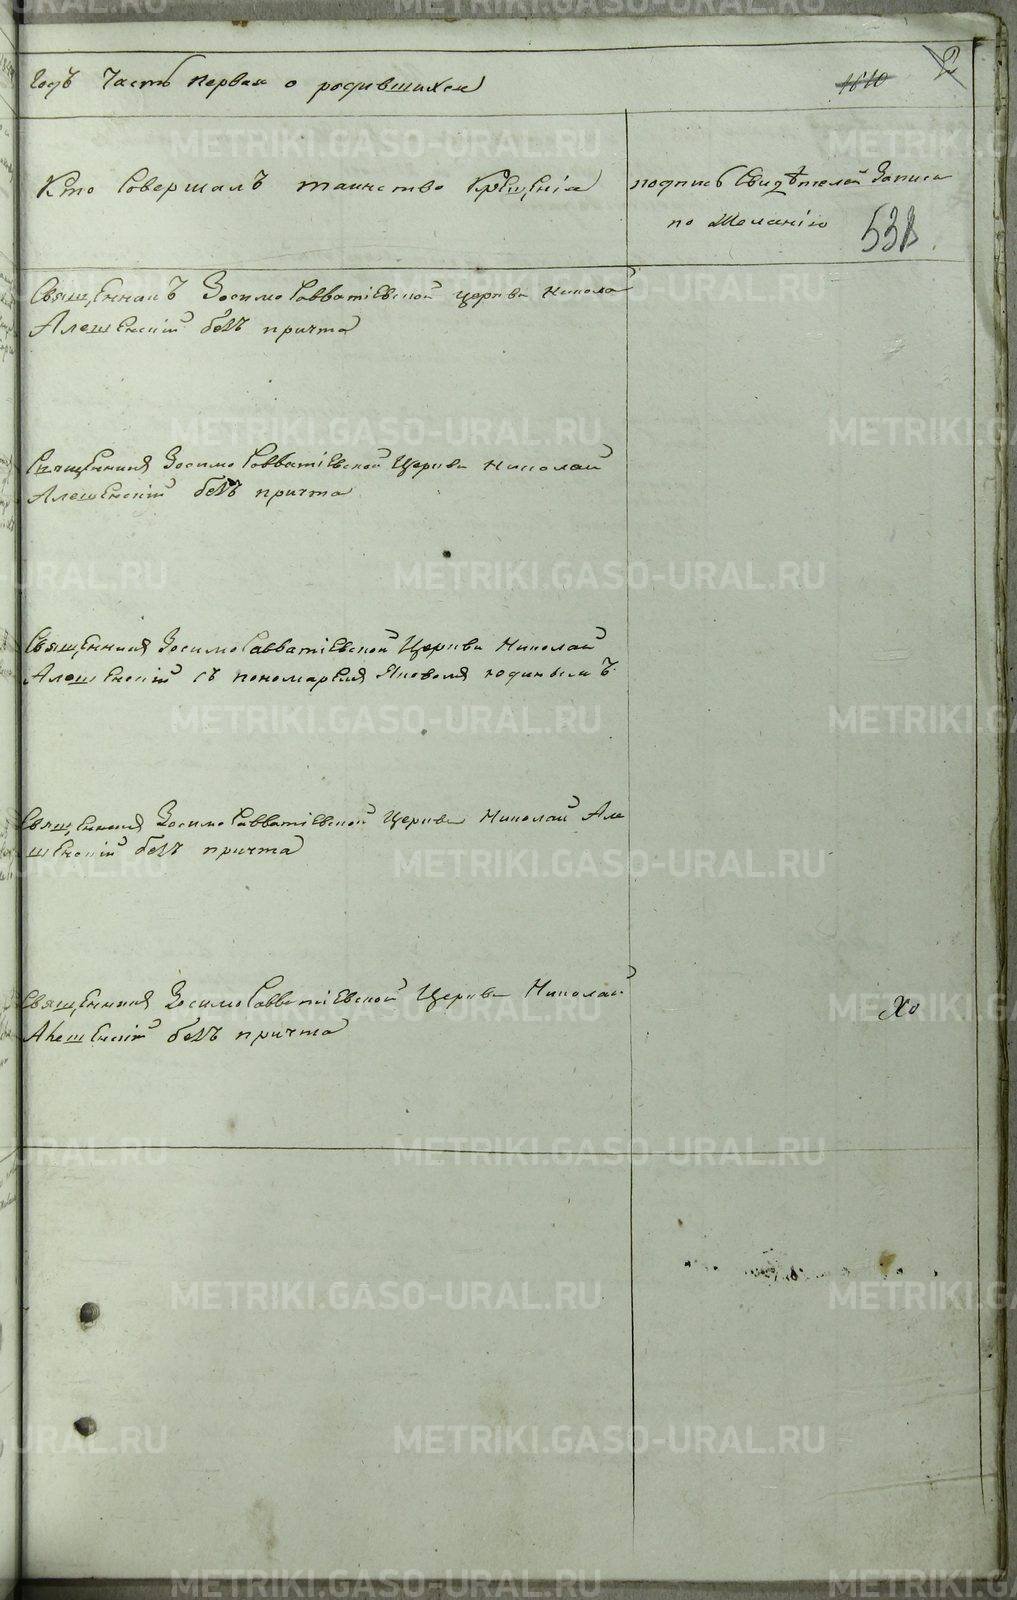 годъ Часть первая о родившихся
1810 2
Кто Совершалъ таинство Крещенія
подпись Свидѣтелей Записи
по Желанію 538
Священникъ Зосимо Савватіевской церкви Никола
Алешенскій безъ причта
Священникъ Зосимо Савватіевской Церкви Николай
Алешенскій безъ причта
Священникъ Зосимо Савватіевской Церкви Николай
Алешенскій съ пономаремъ Яковомъ
Священникъ Зосимо Савватіевской Церкви Николай Але
шенскій безъ причта
Священникъ Зосимо Савватіевской Церкви Николай
Алешенскій безъ причта
METRIKI.GASO-URAL.RU